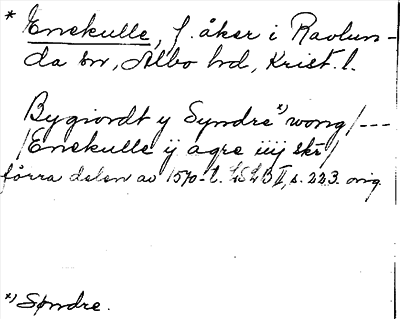 * Enekulle, f. åker i Ravlun-
da sn, Albo hd, Krist. l.
Bygiordt y Syndre *) wong /---
/ Enekulle ij agre iiij skr /
förra delen av 1570-t. LSLB II, s. 223. orig.
*) Søndre.